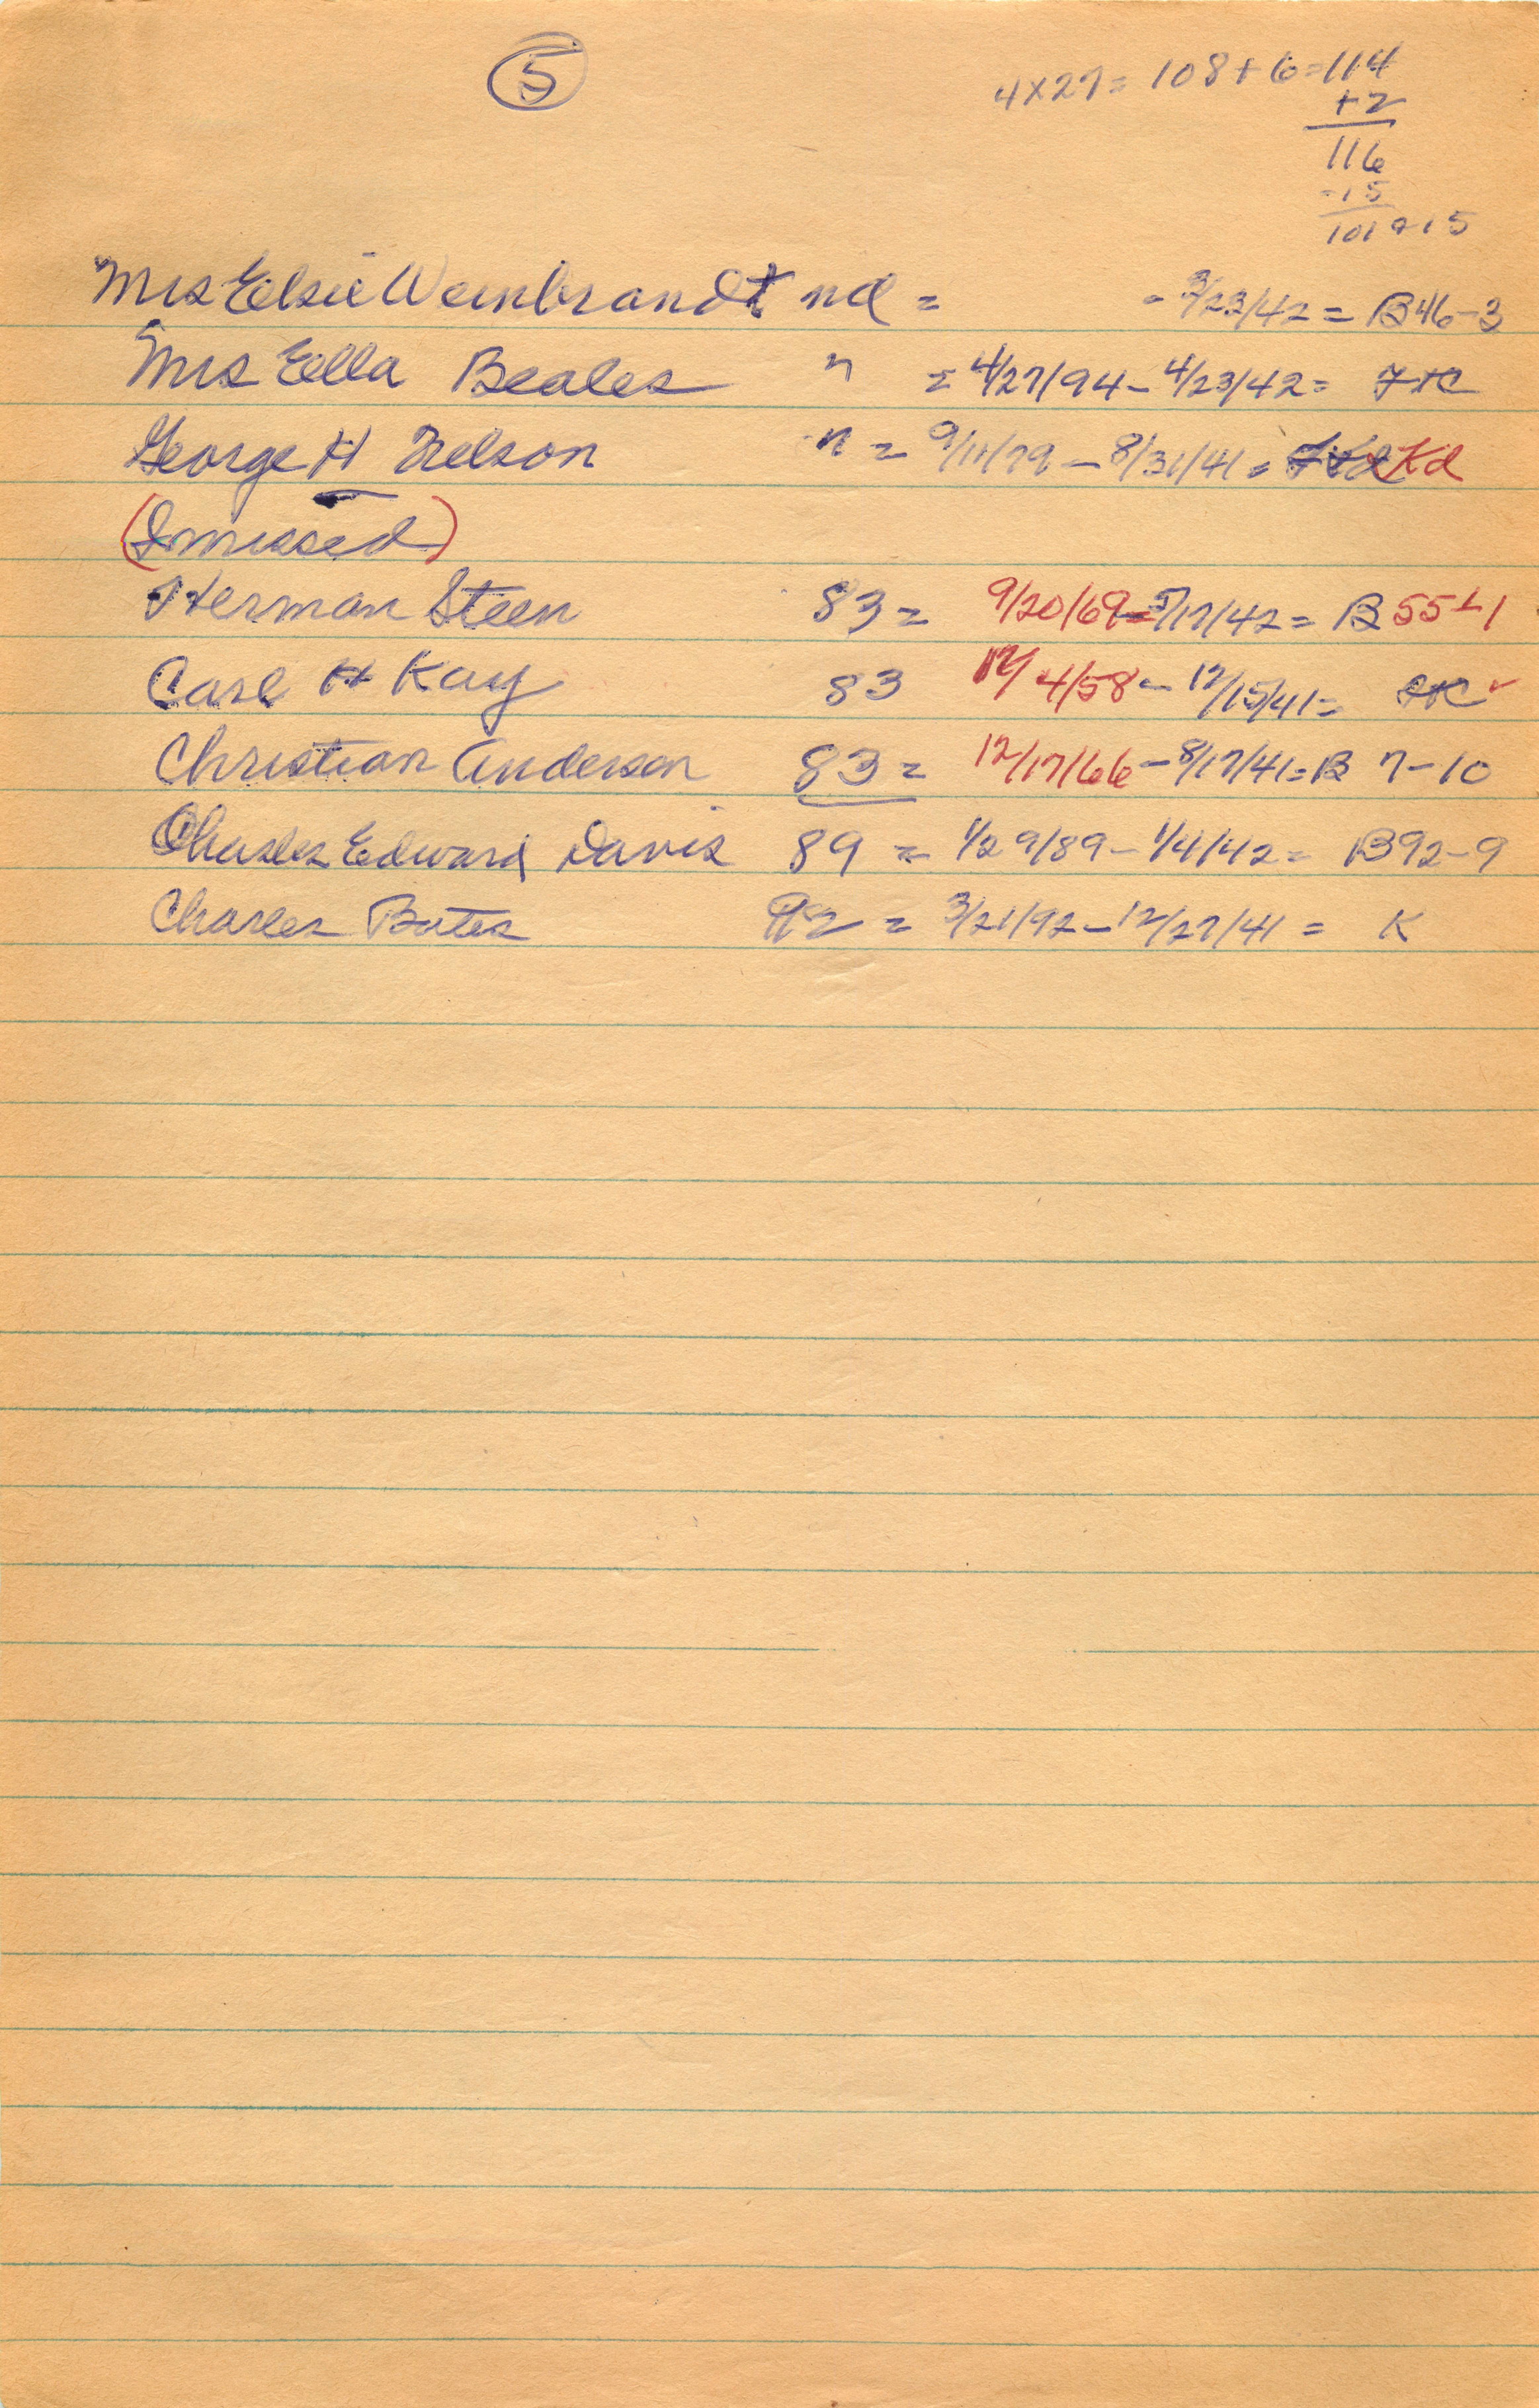 5
4x27= 108+6=114
+2
116
-15
101+15
Mrs Elsie Weinbrandt nd = - 3/23/42 = B46-3
Mrs Ella Beales n = 4/27/94 - 4/23/42 =
George H Nelson n = 9/11/79 - 8/31/41 = Kd
(I missed)
Herman Steen 83 = 9/20/69 - 5/17/42 = B 55-1
Carl H Kay 83 12/4/58 - 12/15/41 =
Christian Andersen 83 = 12/17/66 - 8/17/41 = B 7-10
Charles Edward Davis 89 = 1/29/89 - 1/4/42 = B92-9
Charles Bates 92 = 3/21/92 - 12/27/41 = K